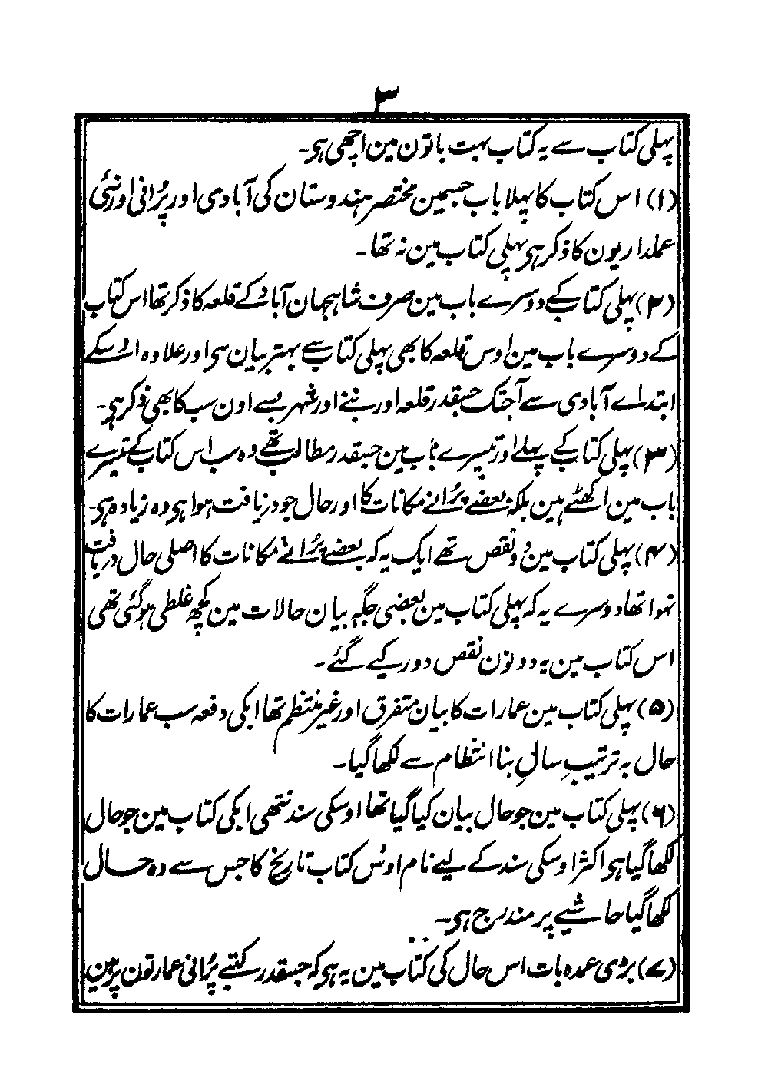 ۳
پہلی کتاب سے یہ کتاب بہت باتون مین اچھی ہو۔
(۱) اس کتاب کا پہلا باب جسمین مختصر ہندوستان کی آبادی اور پُرانی اور نئی
عملداریون کا ذکر ہو پہلی کتاب مین نہ تھا۔
(۲) پہلی کتاب کے دوسرے باب مین صرف شاہجہان آباد کے قلعہ کا ذکر تھا اس کتاب
کے دوسرے باب مین اوس قلعہ کا بھی پہلی کتاب سے بہتر بیان ہو اور علاوہ اسکے
ابتداے آبادی سے آجتک جسقدر قلعہ اور بنے اور شہر بسے اون سب کا بھی ذکر ہو۔
(۳) پہلی کتاب کے پہلے اور تیسرے باب مین جسقدر مطالب تھے وہ سب اس کتاب کے تیسرے
باب مین اکھٹے ہین بلکہ بعضے پرانے مکانات کا اور حال جو دریافت ہوا ہو وہ زیادہ ہو۔
(۴) پہلی کتاب مین دو نقص تھے ایک یہ کہ بعضے پرانے مکانات کا اصلی حال دریافت
نہوا تھا دوسرے یہ کہ پہلی کتاب مین بعضی جگہ بیان حالات مین کچھ غلطی ہو گئی تھی
اس کتاب مین یہ دونون نقص دور کیے گئے۔
(۵) پہلی کتاب مین عمارات کا بیان متفرق اور غیر منتظم تھا ابکی دفعہ سب عمارات کا
حال بہ ترتیبِ سالِ بنا انتظام سے لکھا گیا۔
(۶) پہلی کتاب مین جو حال بیان کیا گیا تھا اوسکی سند نتھی ابکی کتاب مین جو حال
لکھا گیا ہو اکثر اوسکی سند کے لیے نام اوس کتاب تاریخ کا جس سے وہ حال
لکھا گیا حاشیے پر مندرج ہو۔
(۷) بڑی عمدہ بات اس حال کی کتاب مین یہ ہو کہ جسقدر کتبے پُرانی عمارتون پر ہین